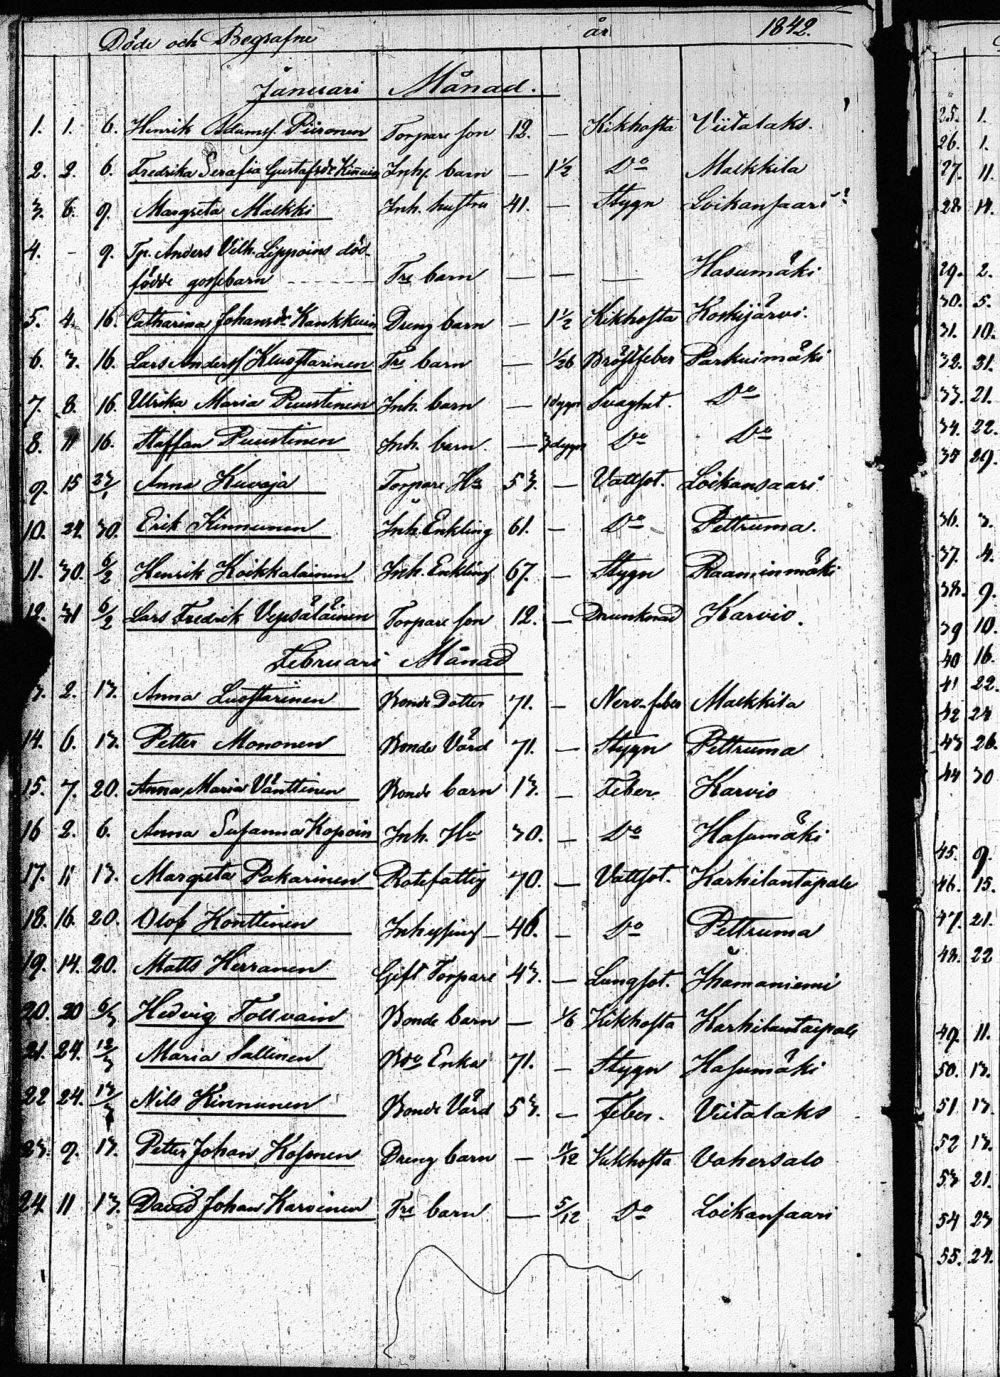 Döde och Begrafne år 1842.
Januari Månad.
1. 1. 6. Henrik Adamss. Piironen Torpare son 12. — Kikhosta Viitalaks.
2. 2. 6. Fredrika Serafia Gustafsdr Kinnuin Inh. barn — 1½ Do Malkkila
3. 6. 9. Margreta Malkki Inh. hustru 41. — Stygn Loikansaari
4. - 9. Tp. Anders Vilh. Lippoins död-
födde gossebarn Tre barn — — — Hasumäki
5. 4. 16. Catharina Johansdr. Kankkuin Dreng barn — 1½ Kikhosta Koskijärvi.
6. 3. 16. Lars Anderss Kuosttarinen Tre barn — 1/26 Bröstfeber Parkuimäki
7. 8. 16. Ulrika Maria Puustinen Inh. barn — 1 dygn Svaghet. Do
8. 11 16. Staffan Puustinen Inh. barn. — 3 dygn Do Do
9. 15 23/1 Anna Kuvaja Torpare Hu 53. — Vattsot. Loikansaari
10. 24. 30. Erik Kinnunen Inh. Enkling 61. — Do Pettruma.
11. 30. 6/2 Henrik Koikkalainen Inh. Enkling 67. — Stygn Raaminmäki
12. 31 6/2 Lars Fredrik Vepsäläinen Torpare son 12. — Drunknad Karvio.
Februari Månad
3. 2. 13. Anna Luosttarinen Bonde Dotter 71. — Nerv-feber Malkkila
14. 6. 13. Petter Mononen Bonde Vård 71. — Stygn Pettruma
15. 7. 20. Anna Maria Vänttinen Bonde barn 13. — Feber Karvio
16 2. 6. Anna Susanna Kopoin Inh. Hu 30. — Do Hasumäki
17. 11 13. Margreta Pakarinen Rotefattig 70. — Vattsot. Karhilantapale
18. 16. 20. Olof Konttinen Inhysing 46. — Do Pettruma
19. 14. 20. Matts Herranen Gift Torpare 43. — Lungsot. Ihamaniemi
20. 20 6/3 Hedvig Tolvain Bonde barn — 1/6 Kikhosta Karhilantaipale
21. 24. 13/3 Maria Sallinen Bde Enka 71. — Stygn Hasumäki
22 24. 13/3 Nils Kinnunen Bonde Vård 53. — Feber. Viitalaks
23. 9. 13. Petter Johan Kosonen Dreng barn — 11/12 Kikhosta Vahersalo
24. 11 13. David Johan Karvinen Tre barn — 5/12 Do Loikansaari
25. 1.
26. 1.
27. 11
28 14.
29. 2.
30. 5.
31. 10.
32. 21.
33. 21.
34. 22.
35 29.
36. 3.
37. 4.
38. 9.
39 10.
40 16.
41 22.
42 24
43 26.
44 30
45. 9.
46. 15.
47. 21.
48. 22
49. 11.
50. 13.
51 13.
52 13.
53 21.
54 23
55. 24.